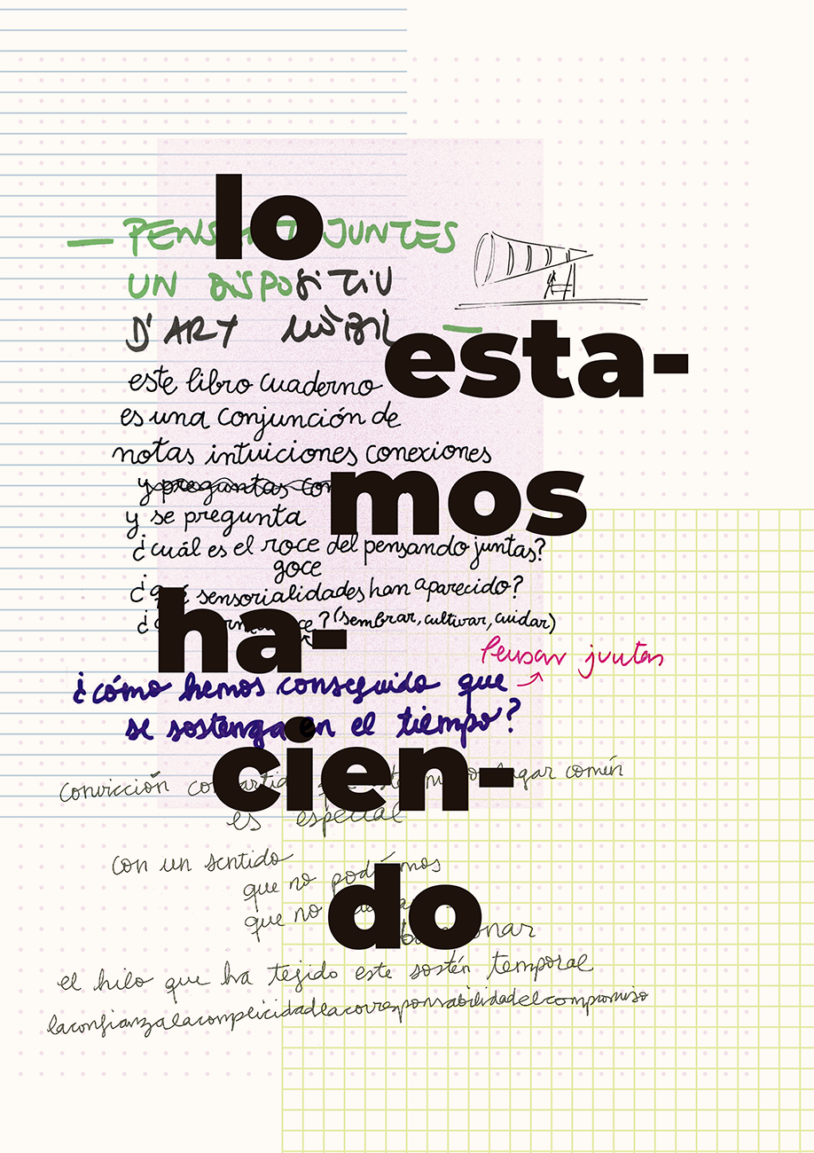 lo
— PENSANT JUNTES
UN DISPOSITIU
D'ART MÒBIL
esta-
este libro cuaderno
es una conjunción de
notas intuiciones conexiones
mos
y preguntas con
y se pregunta
¿cuál es el roce del pensando juntas?
goce
¿qué sensorialidades han aparecido?
ha-
? (sembrar, cultivar, cuidar)
Pensar juntas
¿cómo hemos conseguido que
se sostenga en el tiempo?
cien-
convicción compartida lugar común
es especial
con un sentido
que no podíamos
do
que no
el hilo que ha tejido este sostén temporal
laconfianzalacomplicidadlacorresponsabilidadelcompromiso